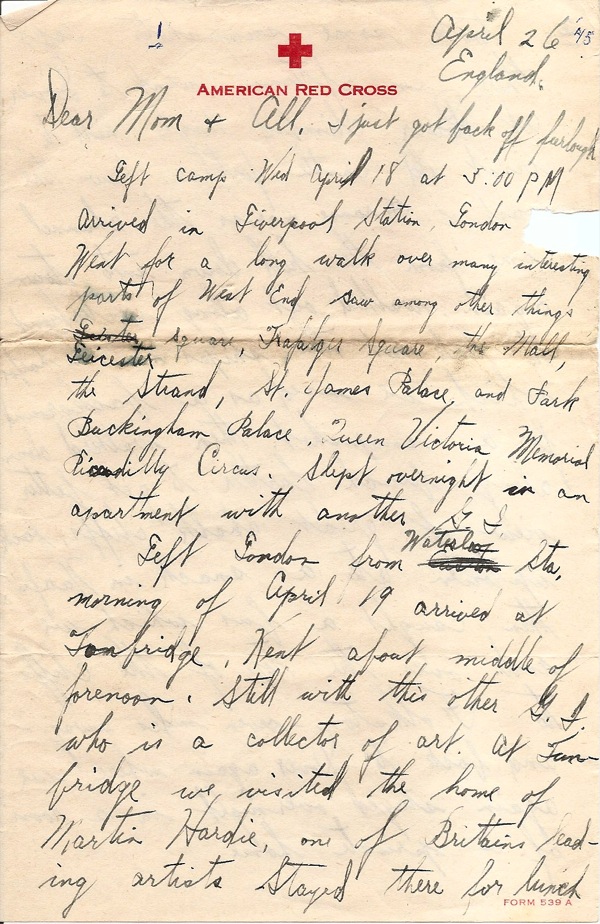 1
April 26 '45
England.
AMERICAN RED CROSS
Dear Mom & All, I just got back off furlough
Left camp Wed April 18 at 5:00 PM
Arrived in Liverpool Station, London
Went for a long walk over many interesting
parts of West End saw among other things
Leicester square, Trafalger Square, the Mall,
the Strand, St. James Palace, and Park
Buckingham Palace. Queen Victoria Memorial
Picadilly Circus. Slept overnight in an
apartment with another G. I.
Left London from Waterloo Sta,
morning of April 19 arrived at
Tonbridge, Kent about middle of
forenoon. Still with this other G. I.
who is a collector of art. At Tun-
bridge we visited the home of
Martin Hardie, one of Brittains lead-
ing artists Stayed there for lunch
FORM 539 A